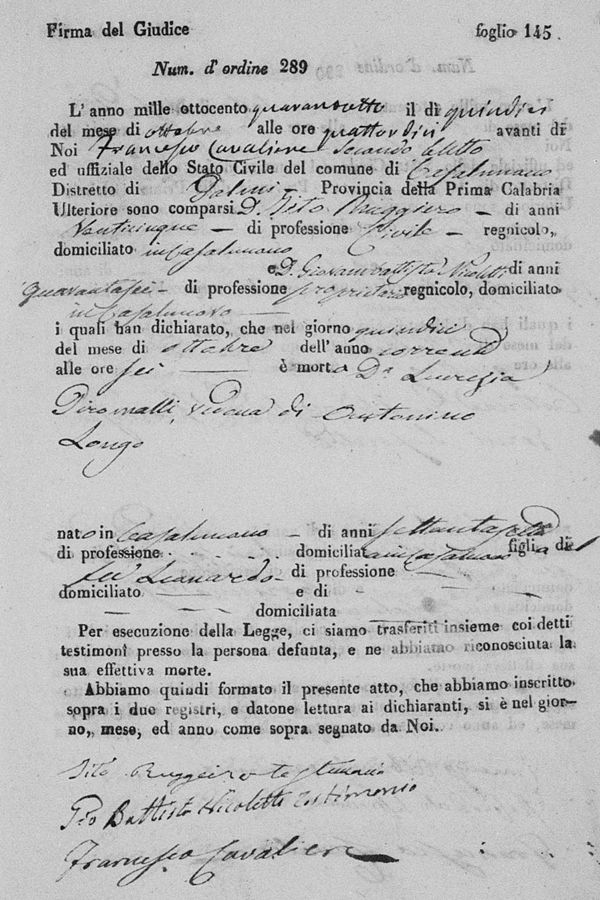 Firma del Giudice foglio 145
Num. d'ordine 289
L'anno mille ottocento quarantotto il di quindici
del mese di ottobre alle ore quattordici avanti di
Noi Francesco Cavaliere Secondo Eletto
ed uffiziale dello Stato Civile del comune di Casalnuovo
Distretto di Palmi - Provincia della Prima Calabria
Ulteriore sono comparsi D. Tito Ruggiero - di anni
Venticinque - di professione Civile - regnicolo,
domiciliato in Casalnuovo
e D. Giovambattista Nicoletti di anni
quarantasei - di professione proprietario regnicolo, domiciliato
in Casalnuovo
i quali han dichiarato, che nel giorno quindici
del mese di ottobre dell'anno corrente
alle ore sei è morta Da Lucrezia
Piromalli, vedova di Antonino
Longo
nato in Casalnuovo - di anni settantasette
di professione domiciliata in Casalnuovo figlia di
fu Leonardo - di professione
domiciliato e di
domiciliata
Per esecuzione della Legge, ci siamo trasferiti insieme coi detti
testimoni presso la persona defunta, e ne abbiamo riconosciuta la
sua effettiva morte.
Abbiamo quindi formato il presente atto, che abbiamo inscritto
sopra i due registri, e datone lettura ai dichiaranti, si è nel gior-
no, mese, ed anno come sopra segnato da Noi.
Tito Ruggiero testimonio
Gio Battista Nicoletti testimonio
Francesco Cavaliere